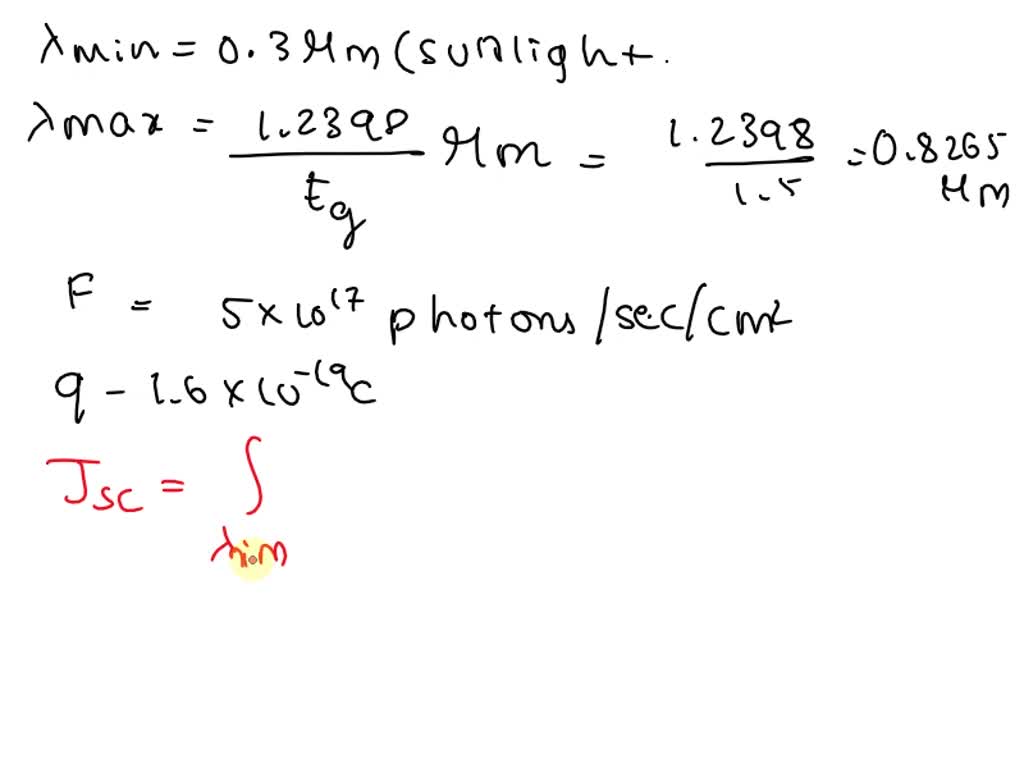 λmin = 0.3 μm (sunlight.
λmax = 1.2398 / Eg μm = 1.2398 / 1.5 = 0.8265 μm
F = 5 × 10^17 photons/sec/cm²
q - 1.6 × 10^-19 C
Jsc = ∫
λmin